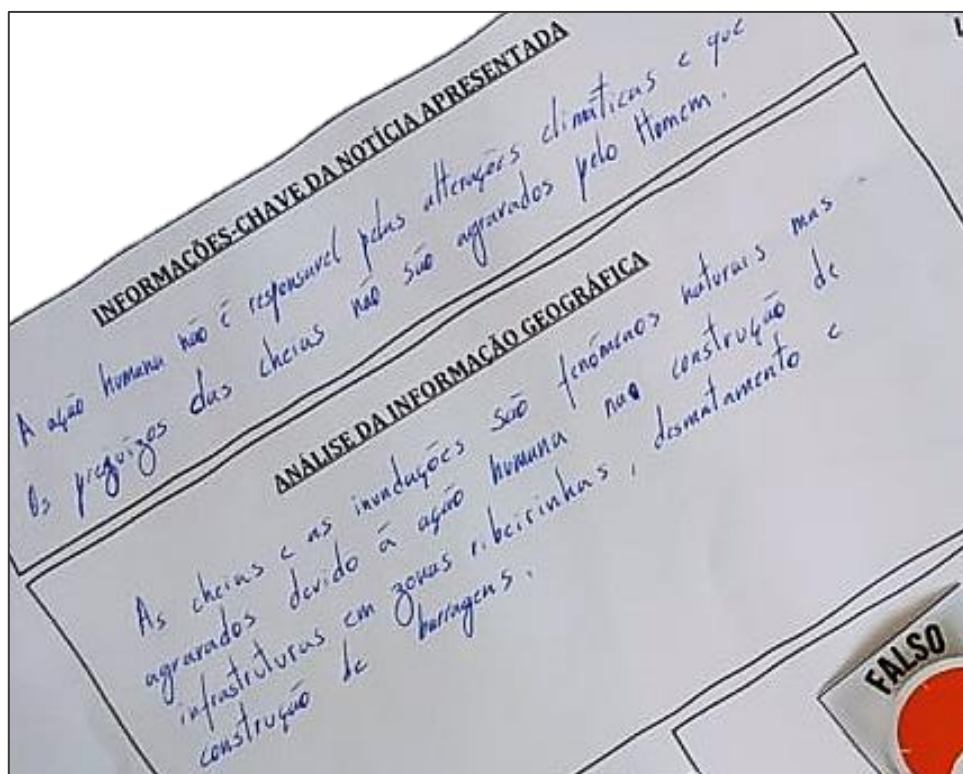 INFORMAÇÕES-CHAVE DA NOTÍCIA APRESENTADA
A ação humana não é responsável pelas alterações climáticas e que
os prejuízos das cheias não são agravados pelo Homem.
ANÁLISE DA INFORMAÇÃO GEOGRÁFICA
As cheias e as inundações são fenómenos naturais mas
agravados devido à ação humana na construção de
infrastruturas em zonas ribeirinhas, desmatamento e
construção de barragens.
FALSO